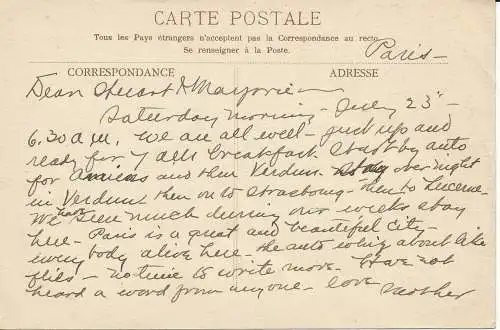 CARTE POSTALE
Tous les Pays étrangers n'acceptent pas la Correspondance au recto.
Se renseigner à la Poste.
Paris—
CORRESPONDANCE
ADRESSE
Dear Stuart & Marjorie—
Saturday morning — July 23"—
6.30 a.m. We are all well — just up and
ready for 7 a.m. breakfast. Start by auto
for Amiens and then Verdun. Stay over night
in Verdun then on to Strasbourg — then to Lucerne—
We have seen much during our weeks stay
here — Paris is a great and beautiful city—
everybody alive here — the auto whiz about like
flies — no time to write more. Have not
heard a word from anyone — love
Mother